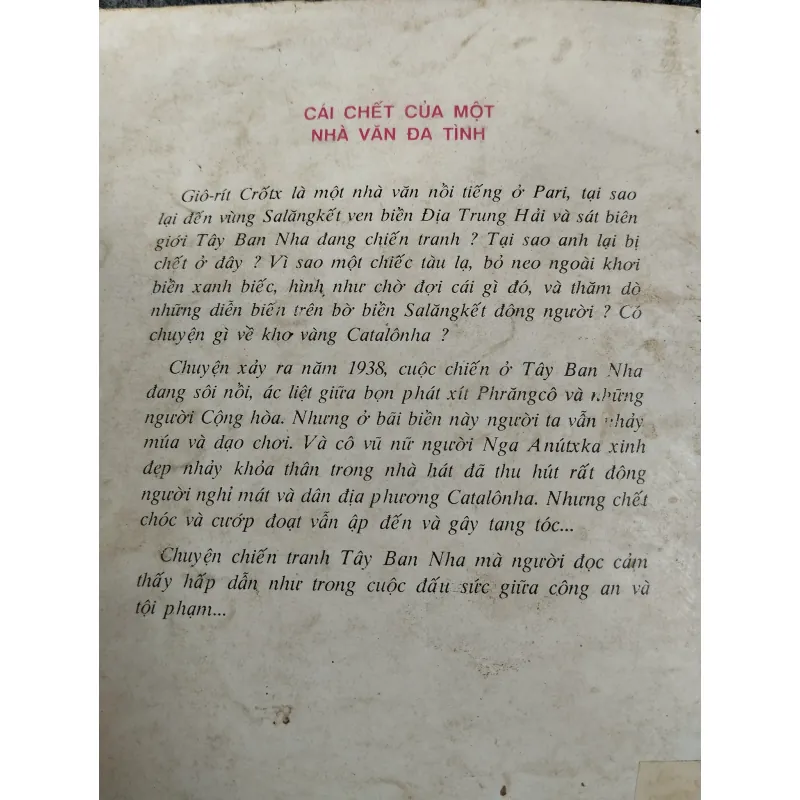 CÁI CHẾT CỦA MỘT
NHÀ VĂN ĐA TÌNH
Giô-rít Crốtx là một nhà văn nồi tiếng ở Pari, tại sao
lại đến vùng Salăngkết ven biền Địa Trung Hải và sát biên
giới Tây Ban Nha đang chiến tranh ? Tại sao anh lại bị
chết ở đây ? Vì sao một chiếc tàu lạ, bỏ neo ngoài khơi
biền xanh biếc, hình như chờ đợi cái gì đó, và thăm dò
những diễn biến trên bờ biền Salăngkết đông người ? Có
chuyện gì về khơ vàng Catalônha ?
Chuyện xảy ra năm 1938, cuộc chiến ở Tây Ban Nha
đang sôi nồi, ác liệt giữa bọn phát xít Phrăngcô và những
người Cộng hòa. Nhưng ở bãi biền này người ta vẫn nhảy
múa và dạo chơi. Và cô vũ nữ người Nga Anútxka xinh
đẹp nhảy khỏa thân trong nhà hát đã thu hút rất đông
người nghỉ mát và dân địa phương Catalônha. Nhưng chết
chóc và cướp đoạt vẫn ập đến và gây tang tóc...
Chuyện chiến tranh Tây Ban Nha mà người đọc cảm
thấy hấp dẫn như trong cuộc đấu sức giữa công an và
tội phạm...